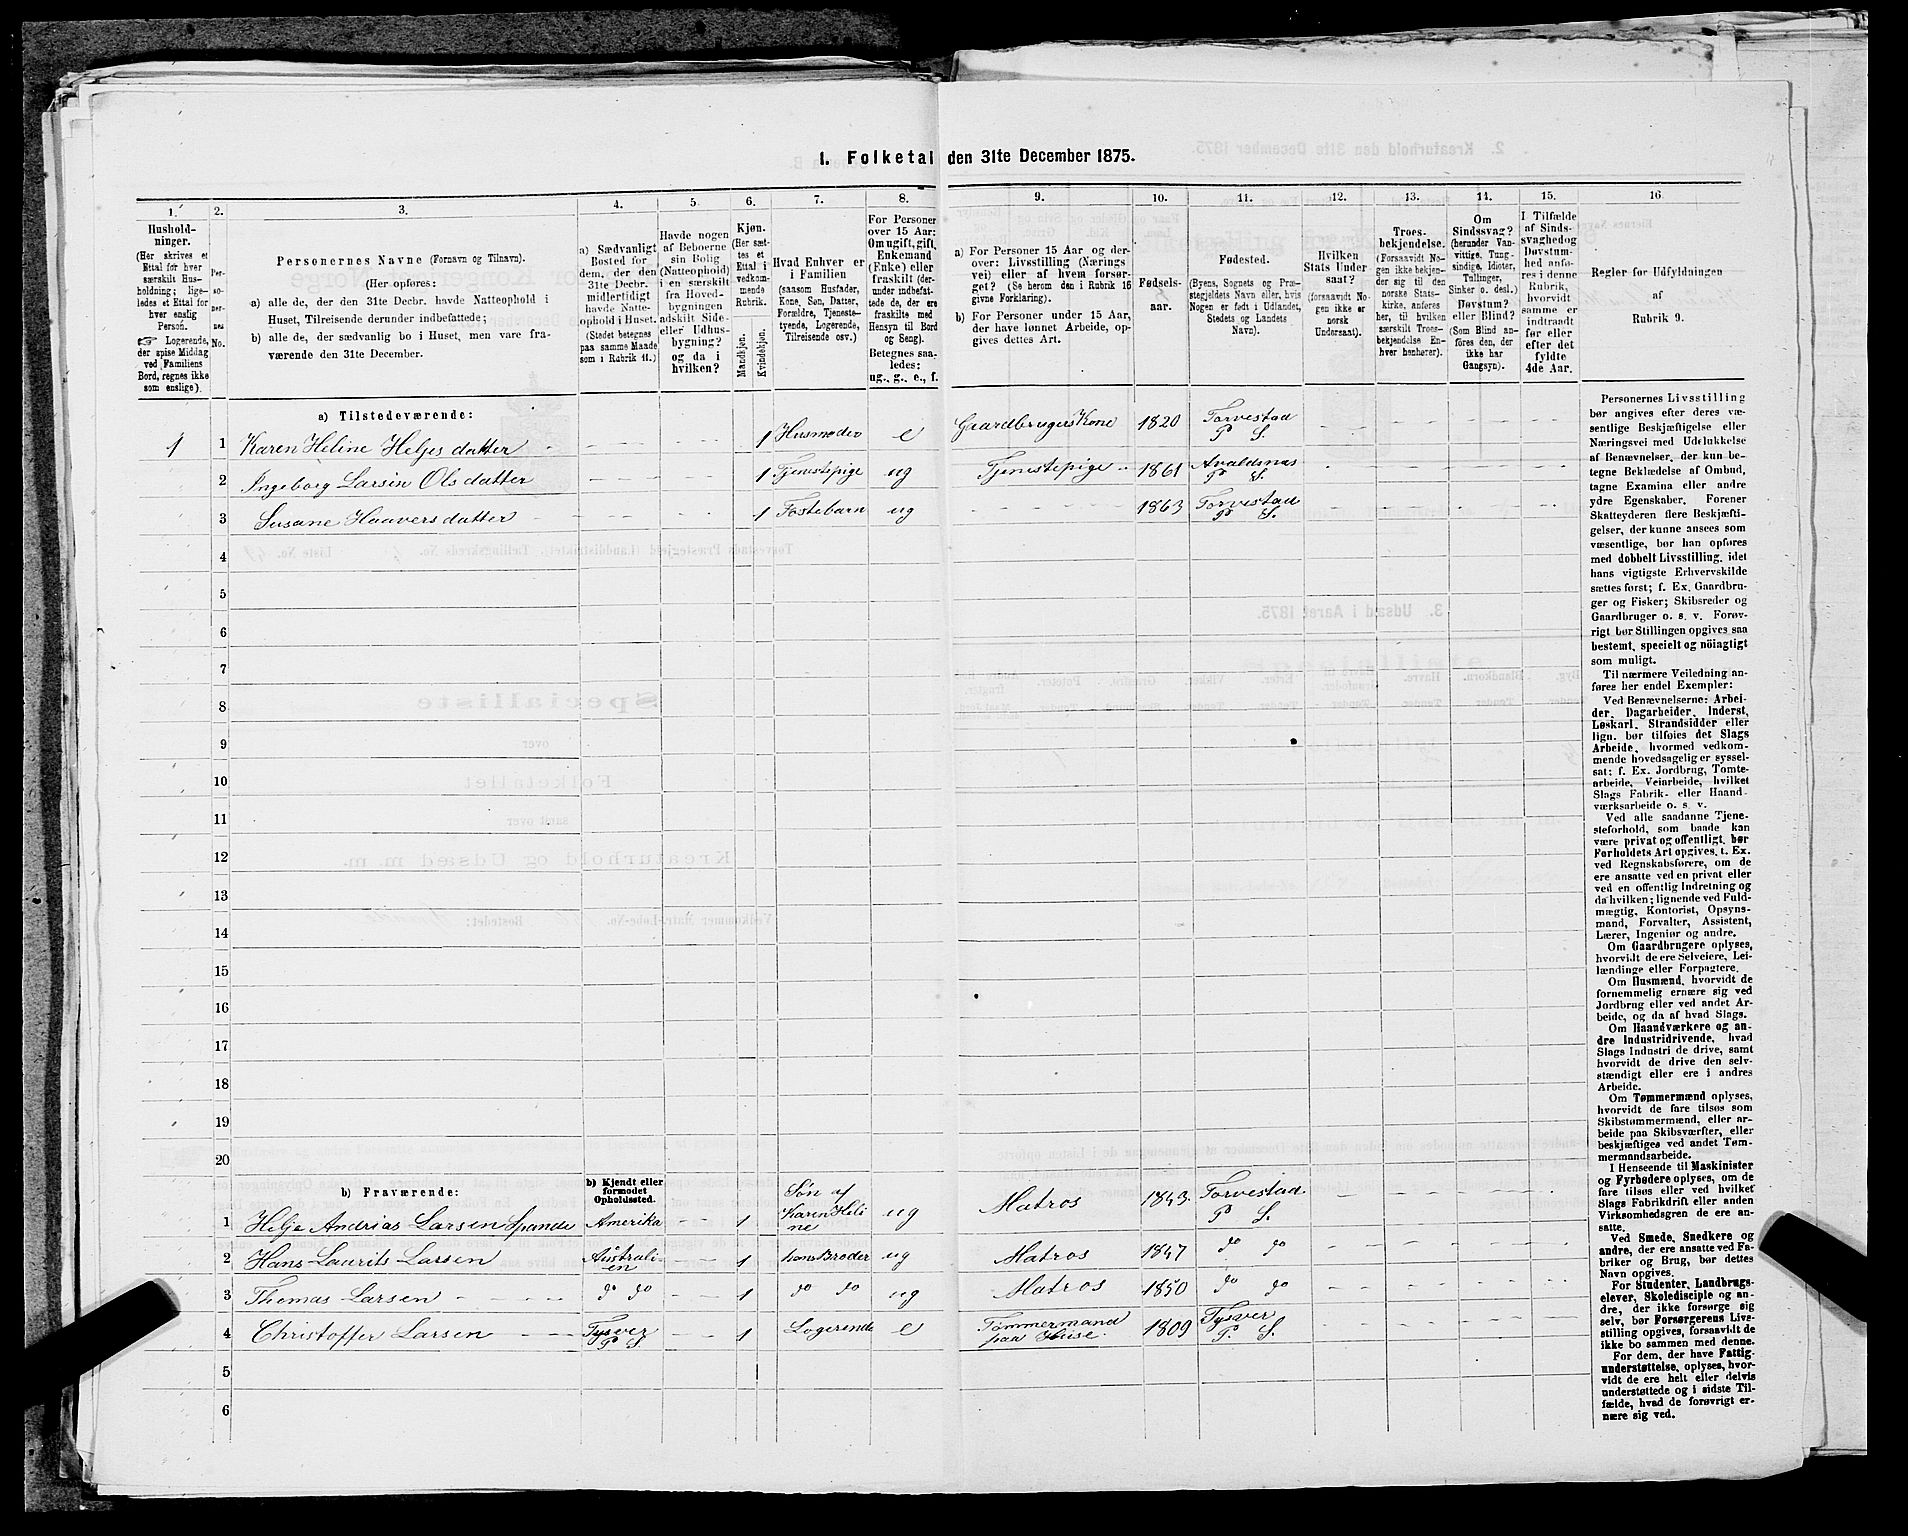 1. Folketal den 31te December 1875.
1.
2.
3.
4.
5.
6.
7.
8.
9.
10.
11.
12.
13.
14.
15.
16
Hushold-
ninger.
(Her skrives et
Ettal for hver
særskilt Hus-
holdning; lige-
ledes et Ettal for
hver enslig
Person.
☞ Logerende,
der spise Middag
ved Familiens
Bord, regnes ikke
som enslige).
Per-
so-
ner-
nes
No.
Personernes Navne (Fornavn og Tilnavn).
(Her opføres:
a) alle de, der den 31te Decbr. havde Natteophold i
Huset, Tilreisende derunder indbefattede;
b) alle de, der sædvanlig bo i Huset, men vare fra-
værende den 31te December.
a) Sædvanligt
Bosted for
dem, der den
31te Decbr.
midlertidigt
havde Natte-
ophold i Huset.
(Stedet betegnes
paa samme Maade
som i Rubrik 11.)
Havde nogen
af Beboerne
sin Bolig
(Natteophold)
i en særskilt
fra Hoved-
bygningen
adskilt Side-
eller Udhus-
bygning?
og da i
hvilken?
Kjøn.
(Her sæt-
tes et
Ettal i
vedkom-
mende
Rubrik.
Mandkjøn.
Kvindekjøn.
Hvad Enhver er
i Familien
(saasom Husfader,
Kone, Søn, Datter,
Forældre, Tjeneste-
tyende, Logerende,
Tilreisende osv.)
For Personer
over 15 Aar:
Om ugift, gift,
Enkemand
(Enke) eller
fraskilt (der-
under indbefat-
tede de, der ere
fraskilte med
Hensyn til Bord
og Seng).
Betegnes saa-
ledes:
ug., g., e., f.
a) For Personer 15 Aar og der-
over: Livsstilling (Nærings
vei) eller af hvem forsør-
get? (Se herom den i Rubrik 16
givne Forklaring).
b) For Personer under 15 Aar,
der have lønnet Arbeide, op-
gives dettes Art.
Fødsels-
aar.
Fødested.
(Byens, Sognets og Præ-
stegjeldets Navn eller, hvis
Nogen er født i Udlandet,
Stedets og Landets
Navn).
Hvilken
Stats Under
saat?
(forsaavidt No-
gen ikke er
norsk
Undersaat).
Troes-
bekjendelse.
(Forsaavidt No
gen ikke bekjen-
der sig til den
norske Stats-
kirke, anføres
her, til hvilken
særskilt Troes-
bekjendelse En-
hver henhører).
Om
Sindssvag?
(herunder Van-
vittige, Tung-
sindige, Idioter,
Tullinger,
Sinker o. desl.)
Døvstum?
eller Blind?
(Som Blind an-
føres den, der
ikke har
Gangsyn).
I Tilfælde
af Sinds-
svaghed og
Døvstum-
hed anfø-
res i denne
Rubrik,
hvorvidt
samme er
indtraadt
før eller
efter det
fyldte
4de Aar.
Regler før Udfyldningen
af
Rubrik 9.
a) Tilstedeværende:
1 1 Karen Heline Heljesdatter 1 Husmoder e Gaardbrugers Kone 1820 Torvestad P S.
2 Ingeborg Larsin Olsdatter 1 Tjenestepige ug Tjenestepige 1861 Avaldsnæs P S.
3 Susane Haaversdatter 1 Fostebarn ug 1863 Torvestad P S.
4
5
6
7
8
9
10
11
12
13
14
15
16
17
18
19
20
b) Fraværende:
b) Kjendt eller
formodet
Opholdssted.
1 Helje Andrias Larsen Spande Amerika 1 Søn af Karen Heline ug Matros 1843. Torvestad P S.
2 Hans Laurits Larsen Australien 1 hans Broder ug Matros 1847 do do
3 Thomas Larsen do do 1 do do ug Matros 1850 do do
4 Christoffer Larsen Tysver P S 1 Logerende e Tømmermand paa Huse. 1809 Tysver P S.
5
6
Personernes Livsstilling
bør angives efter deres væ-
sentlige Beskjæftigelse eller
Næringsvei med Udelukkelse
af Benævnelser, der kun be-
tegne Beklædelse af Ombud,
tagne Examina eller andre
ydre Egenskaber. Forener
Skatteyderen flere Beskjæfti-
gelser, der kunne ansees som
væsentlige, bør han opføres
med dobbelt Livsstilling, idet
hans vigtigste Erhvervskilde
sættes først; f. Ex. Gaardbru-
ger og Fisker; Skibsreder og
Gaardbruger o. s. v. Forøv-
rigt bør Stillingen opgives saa
bestemt, specielt og nöiagtigt
som muligt.
Til nærmere Veiledning an-
føres her endel Exempler:
Ved Benævnelserne: Arbei-
der, Dagarbeider, Inderst,
Løskarl, Strandsidder eller
lign. bør tilføies det Slags
Arbeide, hvormed vedkom-
mende hovedsagelig er syssel-
sat; f. Ex. Jordbrug, Tomte-
arbeide, Veiarbeide, hvilket
Slags Fabrik- eller Haand-
værksarbeide o. s. v.
Ved alle saadanne Tjene-
steforhold, som baade kan
være privat og offentligt, bør
Forholdets Art opgives, t. Ex.
ved Regnskabsførere, om de
ere ansatte ved en privat eller
ved en offentlig Indretning og
da hvilken; lignende ved Fuld-
mægtig, Kontorist, Opsyns-
mand, Forvalter, Assistent,
Lærer, Ingeniør og andre.
Om Gaardbrugere oplyses,
hvorvidt de ere Selveiere, Lei-
lændinge eller Forpagtere.
Om Husmænd, hvorvidt de
fornemmelig ernære sig ved
Jordbrug eller ved andet Ar-
beide, og da af hvad Slags.
Om Haandværkere og an-
dre Industridrivende, hvad
Slags Industri de drive, samt
hvorvidt de drive den selv-
stændigt eller ere i andres
Arbeide.
Om Tømmermænd oplyses,
hvorvidt de fare tilsøs som
Skibstømmermænd, eller ar-
beide paa Skibsværfter, eller
beskjæftiges ved andet Tøm-
mermandsarbeide.
I Henseende til Maskinister
og Fyrbødere oplyses, om de
fare tilsøs eller ved hvilket
Slags Fabrikdrift eller anden
Virksomhedsgren de ere an-
satte.
Ved Smede, Snedkere og
andre, der ere ansatte ved Fa-
briker og Brug, bør dettes
Navn opgives.
For Studenter, Landbrugs-
elever, Skoledisciple og an-
dre, der ikke forsørge sig
selv, bør Forsørgerens Livs-
stilling opgives, forsaavidt de
ikke bo sammen med denne.
For dem, der have Fattig-
understøttelse, oplyses, hvor-
vidt de ere helt eller delvis
understøttede og i sidste Til-
fælde, hvad de forøvrigt er-
nære sig ved.